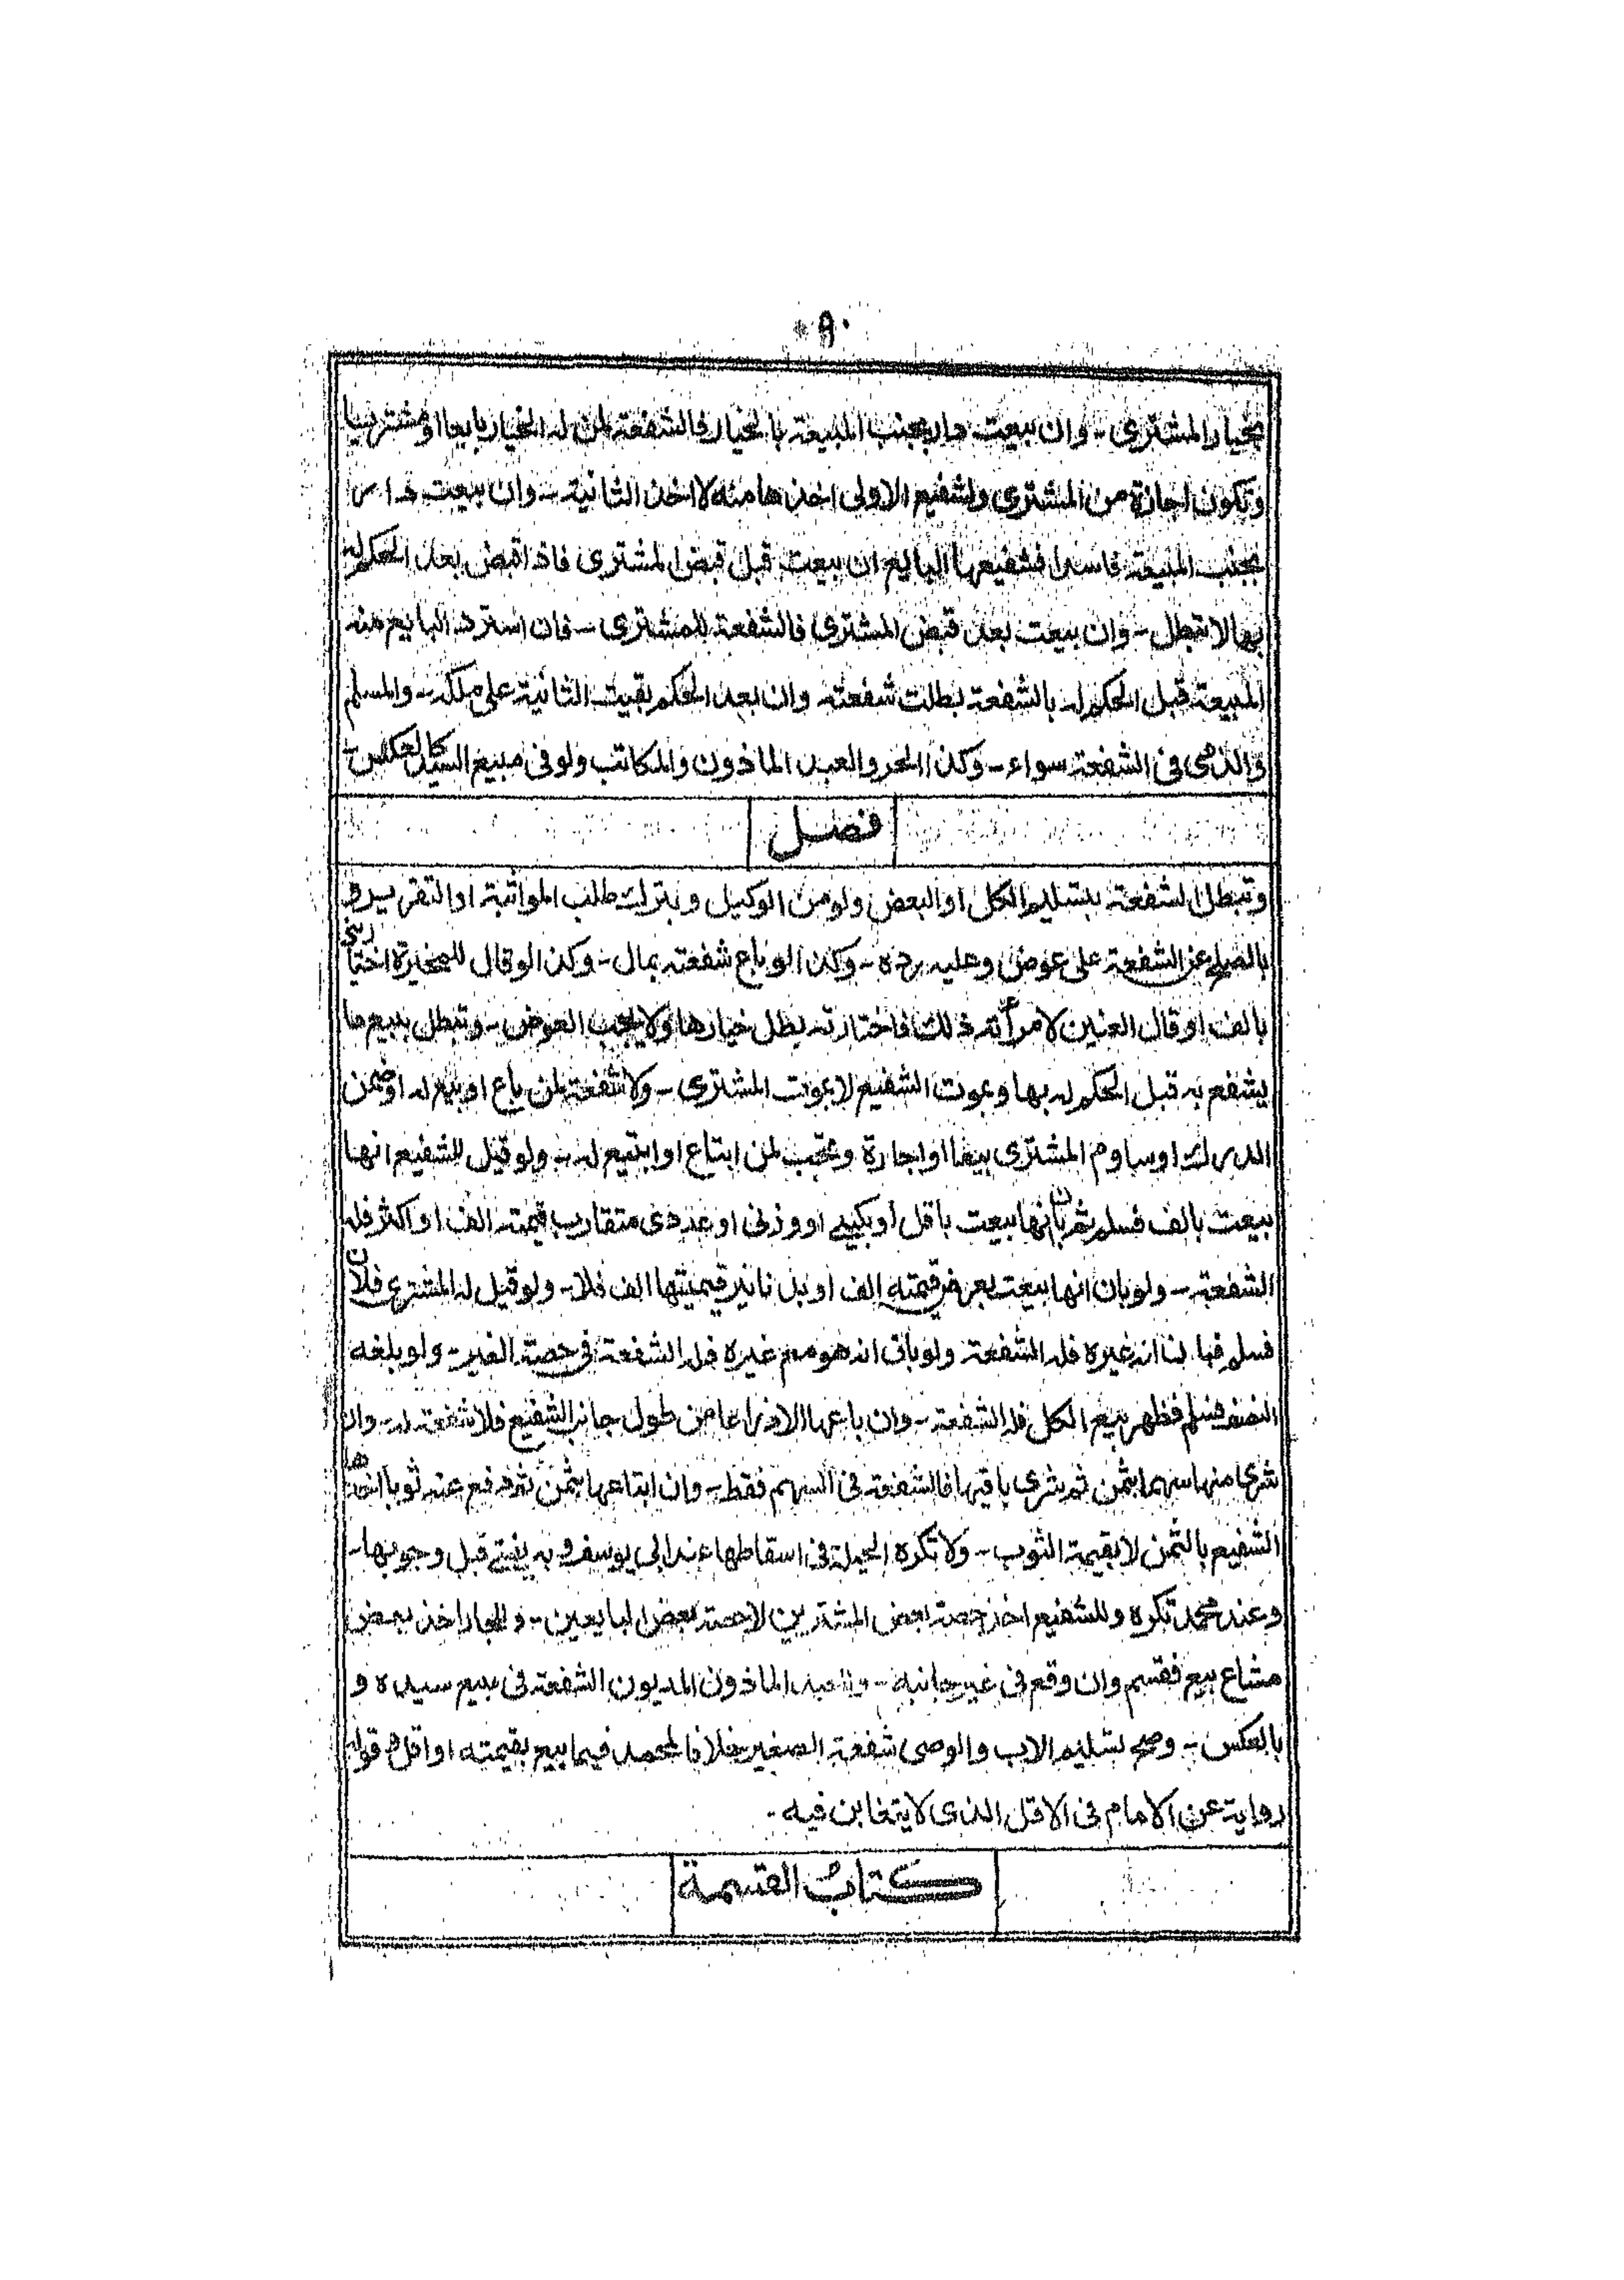 ٩٠
بخيار المشترى ـ وان بيعت دار بجنب المبيعة بالخيار فالشفعة لمن له الخيار بايعا او مشتريا
وتكون اجازة من المشترى ولشفيع الاولى اخذها منه لا اخذ الثانية ـ وان بيعت دار
بجنب المبيعة فاسدا فشفيعها البايع ان بيعت قبل قبض المشترى فاذا قبض بعد الحكم له
بها لا تبطل ـ وان بيعت بعد قبض المشترى فالشفعة للمشترى ـ فان استرد البايع منه
المبيعة قبل الحكم له بالشفعة بطلت شفعته وان بعد الحكم بقيت الثانية على ملكه ـ والمسلم
والذمى فى الشفعة سواء ـ وكذا الحر والعبد الماذون والمكاتب ولو فى مبيع السيد كالعكس ـ
فصل
وتبطل الشفعة بتسليم الكل او البعض ولو من الوكيل وبترك طلب المواثبة او التقرير و
بالصلح عن الشفعة على عوض وعليه رده ـ وكذا لو باع شفعته بمال ـ وكذا لو قال للمخيرة اختارينى
بالف او قال العنين لامرأته ذلك فاختارته بطل خيارها ولا يجب العوض ـ وتبطل ببيع ما
يشفع به قبل الحكم له بها وبموت الشفيع لا بموت المشترى ـ ولا شفعة لمن باع او بيع له او ضمن
الدرك او ساوم المشترى بيعا او اجارة وتجب لمن ابتاع او ابتيع له ـ ولو قيل للشفيع انها
بيعت بالف فسلم ثم بان انها بيعت باقل او بكيلى او وزنى او عددى متقارب قيمته الف او اكثر فله
الشفعة ـ ولو بان انها بيعت بعرض قيمته الف او بدنانير قيمتها الف فلا ـ ولو قيل له المشترى فلان
فسلم فبان انه غيره فله الشفعة ولو بان انه هو مع غيره فله الشفعة فى حصة الغير ـ ولو بلغه
النصف فسلم فظهر بيع الكل فله الشفعة ـ وان باعها الا ذراعا من طول جانب الشفيع فلا شفعة له ـ وان
شرى منها سهما بثمن ثم شرى باقيها فالشفعة فى السهم فقط ـ وان ابتاعها بثمن ثم دفع عنه ثوبا اخذها
الشفيع بالثمن لا بقيمة الثوب ـ ولا تكره الحيلة فى اسقاطها عند ابى يوسف وبه يفتى قبل وجوبها ـ
وعند محمد تكره وللشفيع اخذ حصة بعض المشترين لا حصة بعض البايعين ـ وللجار اخذ بعض
مشاع بيع فقسم وان وقع فى غير جانبه ـ وللعبد الماذون المديون الشفعة فى مبيع سيده و
بالعكس ـ وصح تسليم الاب والوصى شفعة الصغير خلافا لمحمد فيما بيع بقيمته او اقل هو قوله
رواية عن الامام فى الاقل الذى لا يتغابن فيه ـ
كتاب القسمة